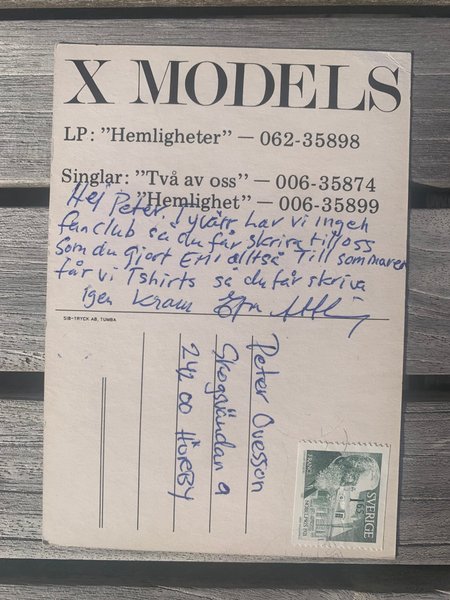 X MODELS
LP: "Hemligheter" — 062-35898
Singlar: "Två av oss" — 006-35874
"Hemlighet" — 006-35899
Hej Peter, Tyvärr har vi ingen
fanclub så du får skriva till oss
som du gjort alltså Till sommaren
får vi Tshirts så du får skriva
igen kram Efva
SIB-TRYCK AB, TUMBA
Peter Ovesson
Skogsvändan 9
242 00 HÖRBY
SVERIGE
165